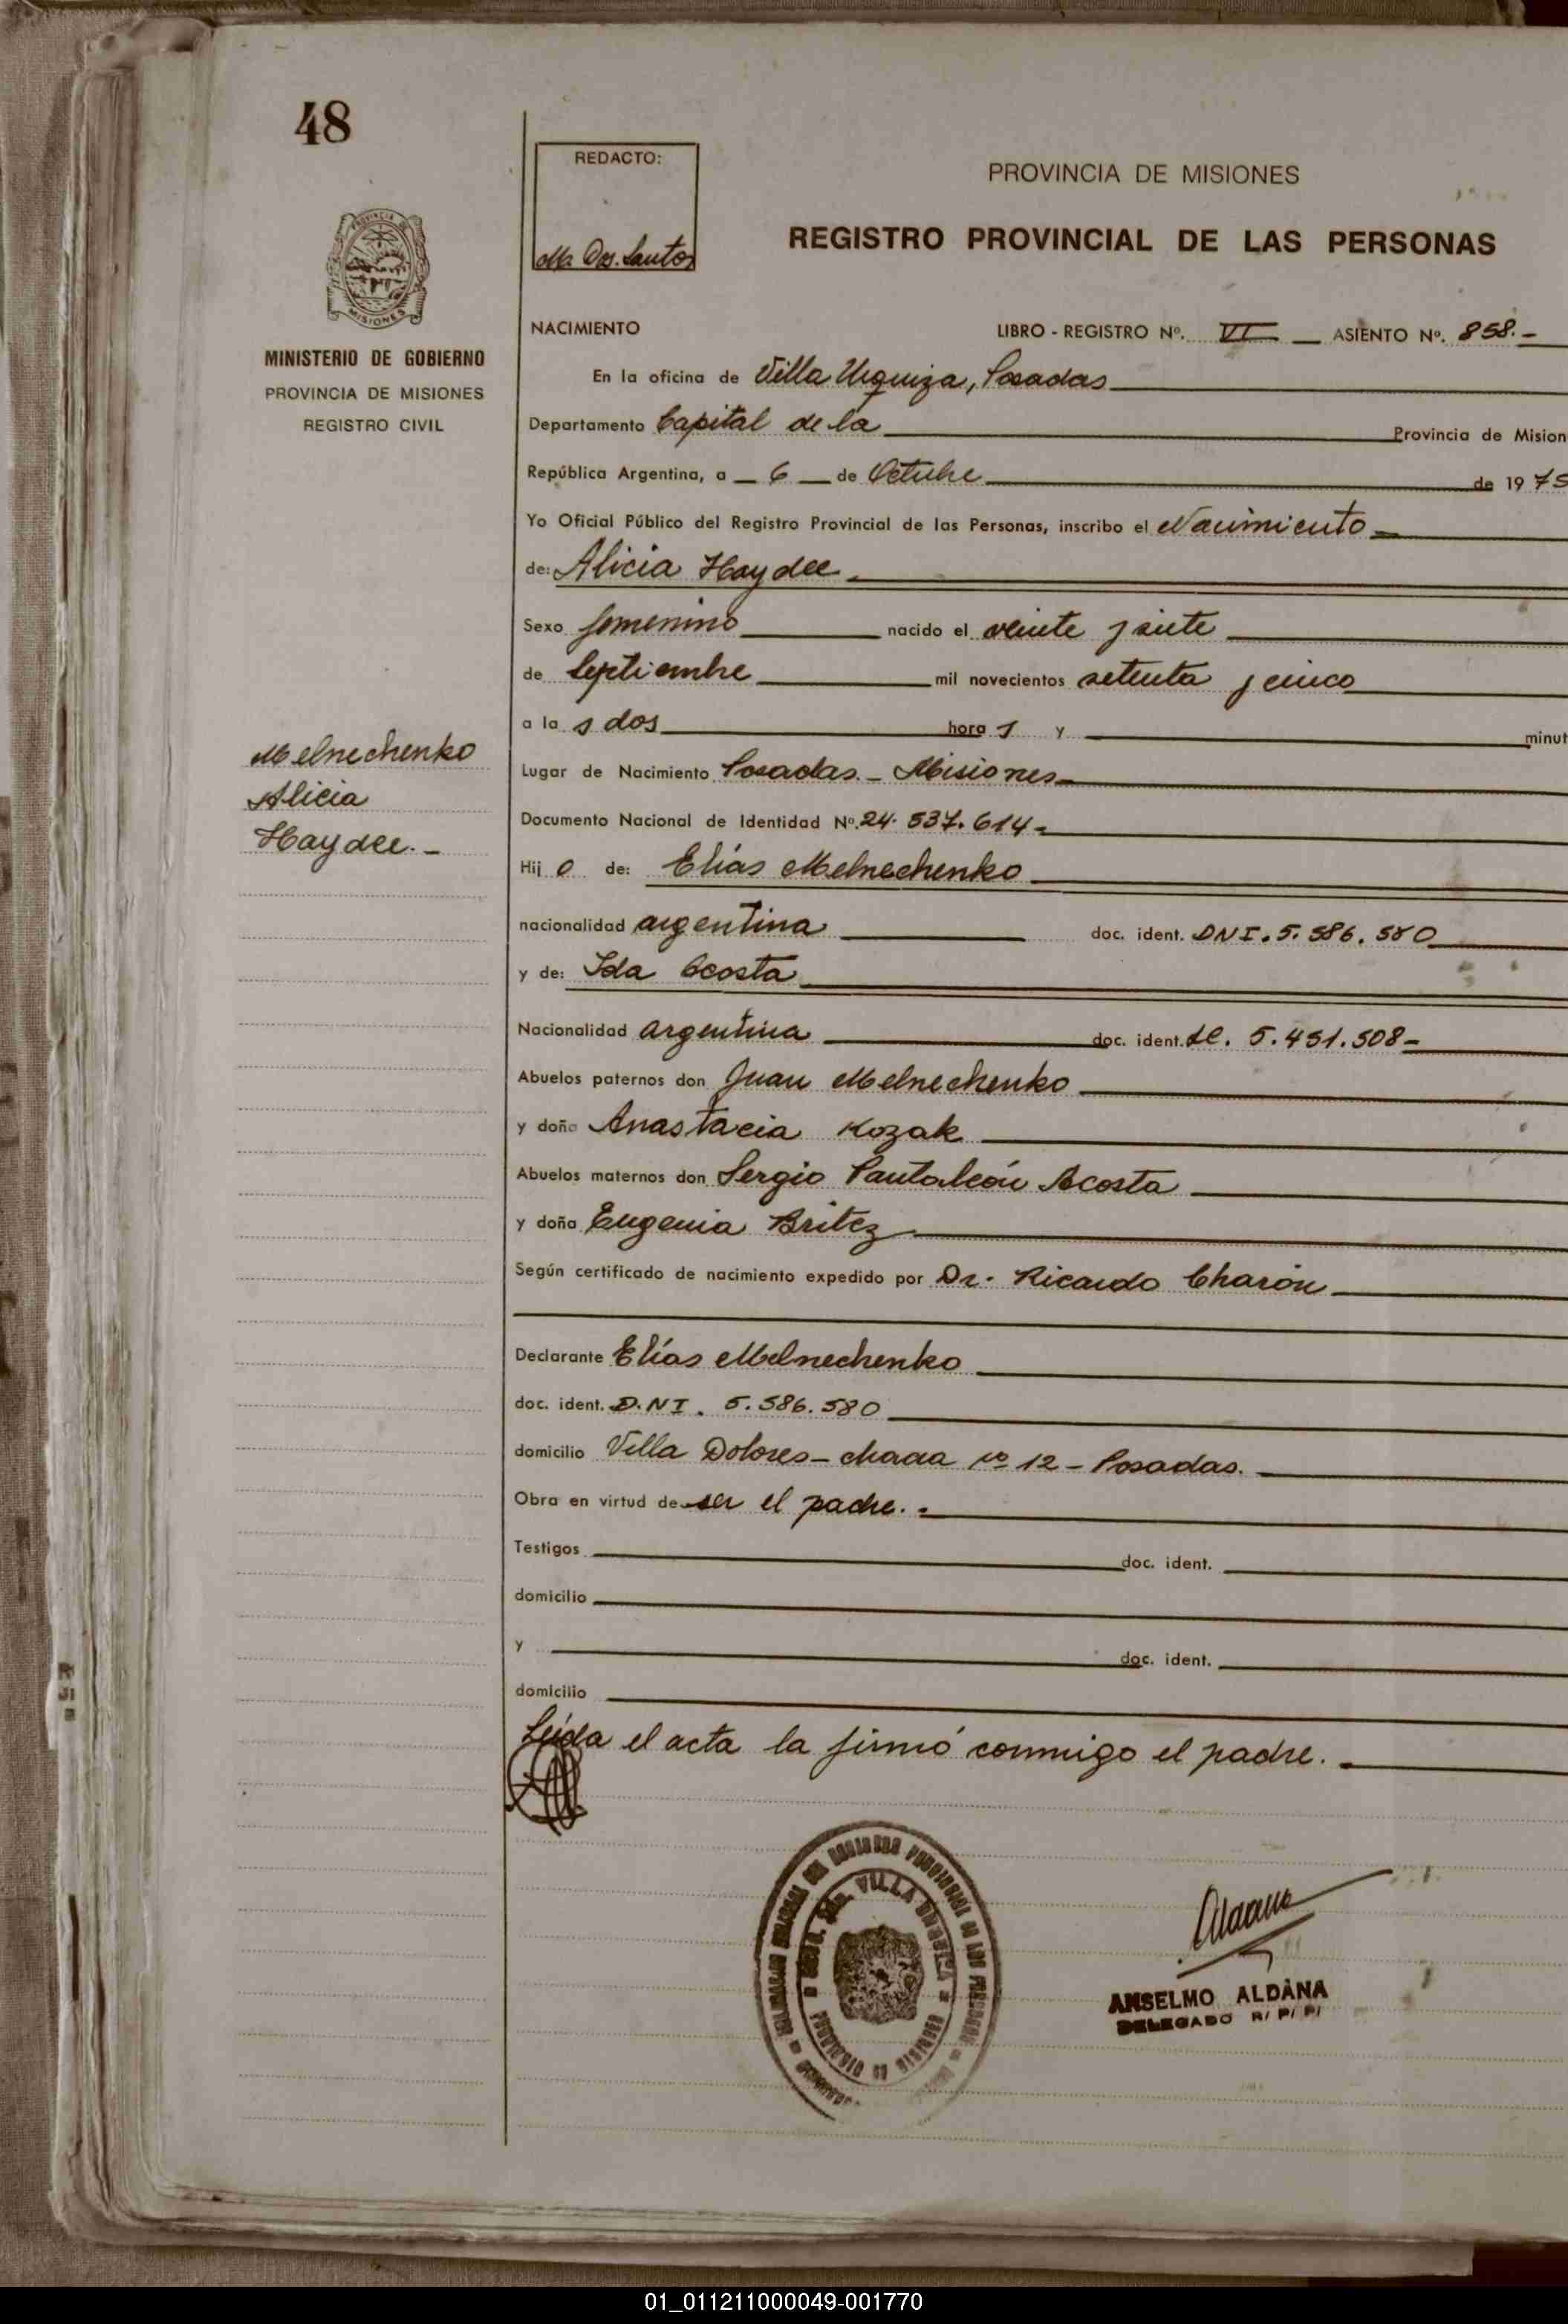 48
REDACTO:
PROVINCIA DE MISIONES
REGISTRO PROVINCIAL DE LAS PERSONAS
PROVINCIA DE
MISIONES
MINISTERIO DE GOBIERNO
PROVINCIA DE MISIONES
REGISTRO CIVIL
NACIMIENTO LIBRO - REGISTRO Nº. VI ASIENTO Nº. 858.-
En la oficina de Villa Urquiza, Posadas
Departamento Capital de la Provincia de Mision
República Argentina, a 6 de Octubre de 1975
Yo Oficial Público del Registro Provincial de las Personas, inscribo el Nacimiento
de: Alicia Haydee
Sexo femenino nacido el veinte y siete
de Septiembre mil novecientos setenta y cinco
a la s dos hora s y minut
Lugar de Nacimiento Posadas.- Misiones
Documento Nacional de Identidad Nº. 24.537.614-
Hij o de: Elías Melnechenko
nacionalidad argentina doc. ident. DNI. 5.586.580
y de: Ida Acosta
Nacionalidad argentina doc. ident. LC. 5.451.508-
Abuelos paternos don Juan Melnechenko
y doña Anastacia Kozak
Abuelos maternos don Sergio Pantaleón Acosta
y doña Eugenia Britez
Según certificado de nacimiento expedido por Dr. Ricardo Charón
Declarante Elías Melnechenko
doc. ident. D.NI. 5.586.580
domicilio Villa Dolores - chacra nº 12 - Posadas.
Obra en virtud de ser el padre.
Testigos doc. ident.
domicilio
y doc. ident.
domicilio
Leída el acta la firmó conmigo el padre.
Melnechenko
Alicia
Haydee.-
VILLA URQUIZA
ANSELMO ALDANA
DELEGADO R/ P/ P/
01_011211000049-001770